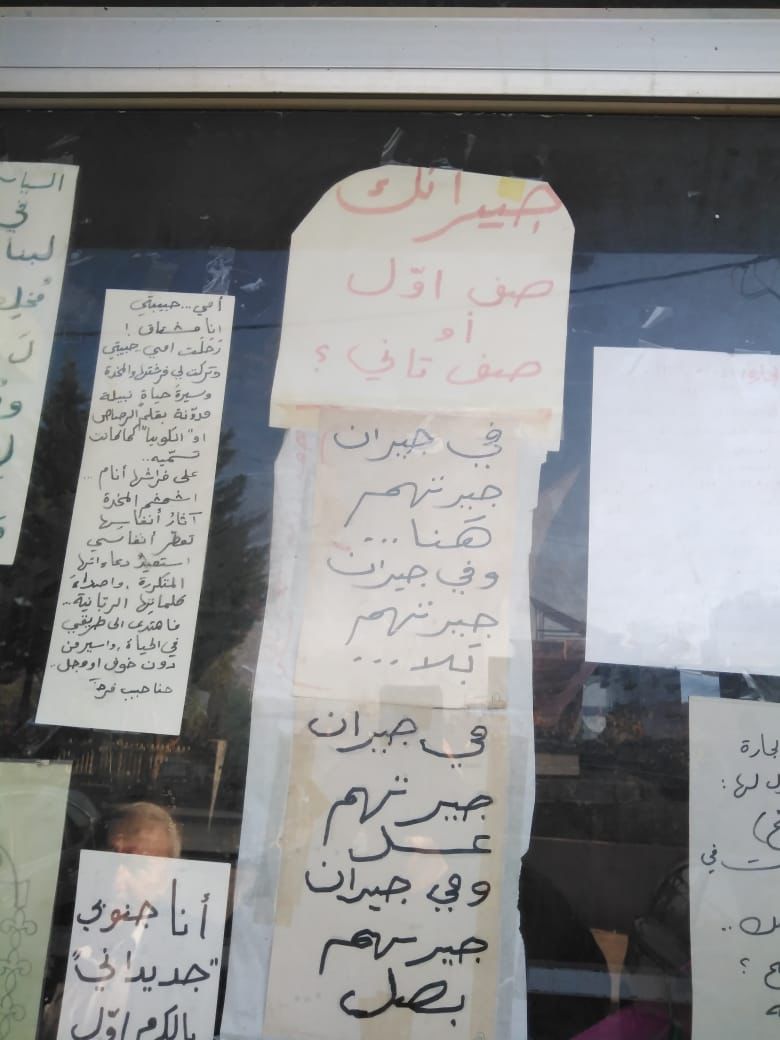 جيرانك
صف اوّل
أو
صف تاني ؟
في جيران
جيرتهم
هَنا...
وفي جيران
جيرتهم
بَلا...
في جيران
جيرتهم
عسل
وفي جيران
جيرتهم
بصل
أمي...حبيبتي
انا مشتاق !
رَحَلَت امي حبيبتي
وتركت لي فرشتها والمخدة
وسيرة حياة نبيلة
مدوّنة بقلم الرصاص
او "الكوبيا" كما كانت
تسمّيه..
على فراشها أنام ..
اشمشم المخدة
آثارُ أنفاسِها
تعطّر أنفاسي
استعيدُ دعاءاتها
المتكررة ,واصداءَ
كلماتِها الربّانية..
فاهتدى الى طريقي
في الحياة ,واسير من
دون خوف او وجل..
حنا حبيب فرح
أنا جنوبي
"جديداني"
بالكرم اوّل
في
لبنا
لجارة
ل لها :
ت في
؟